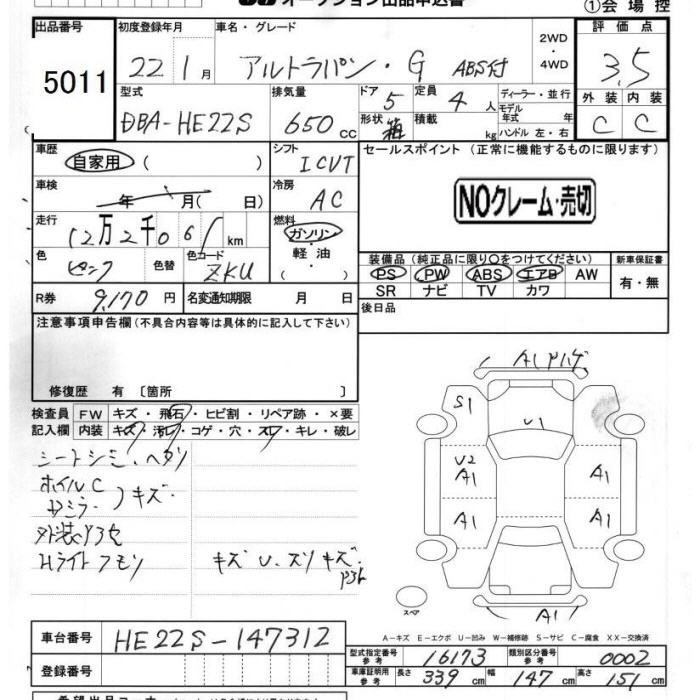 オークション出品申込書
①会場控
出品番号
5011
初度登録年月
22 1月
車名・グレード
アルトラパン・G ABS付
2WD
・
4WD
評価点
3.5
型式
DBA-HE22S
排気量
650cc
ドア 5
形状 箱
定員 4人
積載 kg
ディーラー・並行
モデル
年式 年
ハンドル 左・右
外装 内装
C C
車歴
自家用 ( )
シフト
ICVT
セールスポイント (正常に機能するものに限ります)
車検
年 月( 日)
冷房
AC
NOクレーム・売切
走行
12万2千061km
燃料
ガソリン
・
軽油
・
( )
色
ピンク
色替
色コード
ZKU
装備品(純正品に限り○をつけてください)
PS PW ABS エアB AW
SR ナビ TV カワ
新車保証書
有・無
R券
9,170円
名変通知期限 月 日
後日品
注意事項申告欄(不具合内容等は具体的に記入して下さい)
修復歴 有〔箇所 〕
検査員
記入欄
FW キズ・飛石・ヒビ割・リペア跡・×要
内装 キズ・汚レ・コゲ・穴・スレ・キレ・破レ
シートシミ・ヘタリ
ホイルC
Dミラー
キズ・
Hライトクモリ
キズ U・スリキズ
A1
S1
U1
U2
A1
A1
A1
A1
A1
スペア
A－キズ E－エクボ U－凹み W－補修跡 S－サビ C－腐食 XX－交換済
車台番号
HE22S-147312
型式指定番号
参考
16173
類別区分番号
参考
0002
登録番号
車庫証明用
参考
長さ 339cm
幅 147cm
高さ 151cm